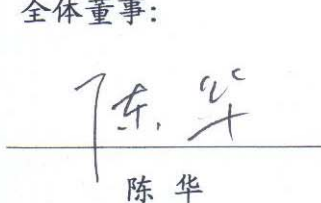 全体董事:
陈华
陈 华